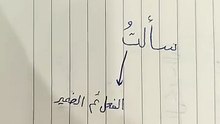 سألتُ
الفعل ثم الضمير